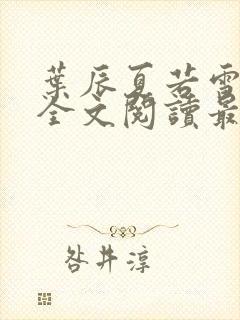 葉辰夏若雪
全文閱讀最
咎井淳